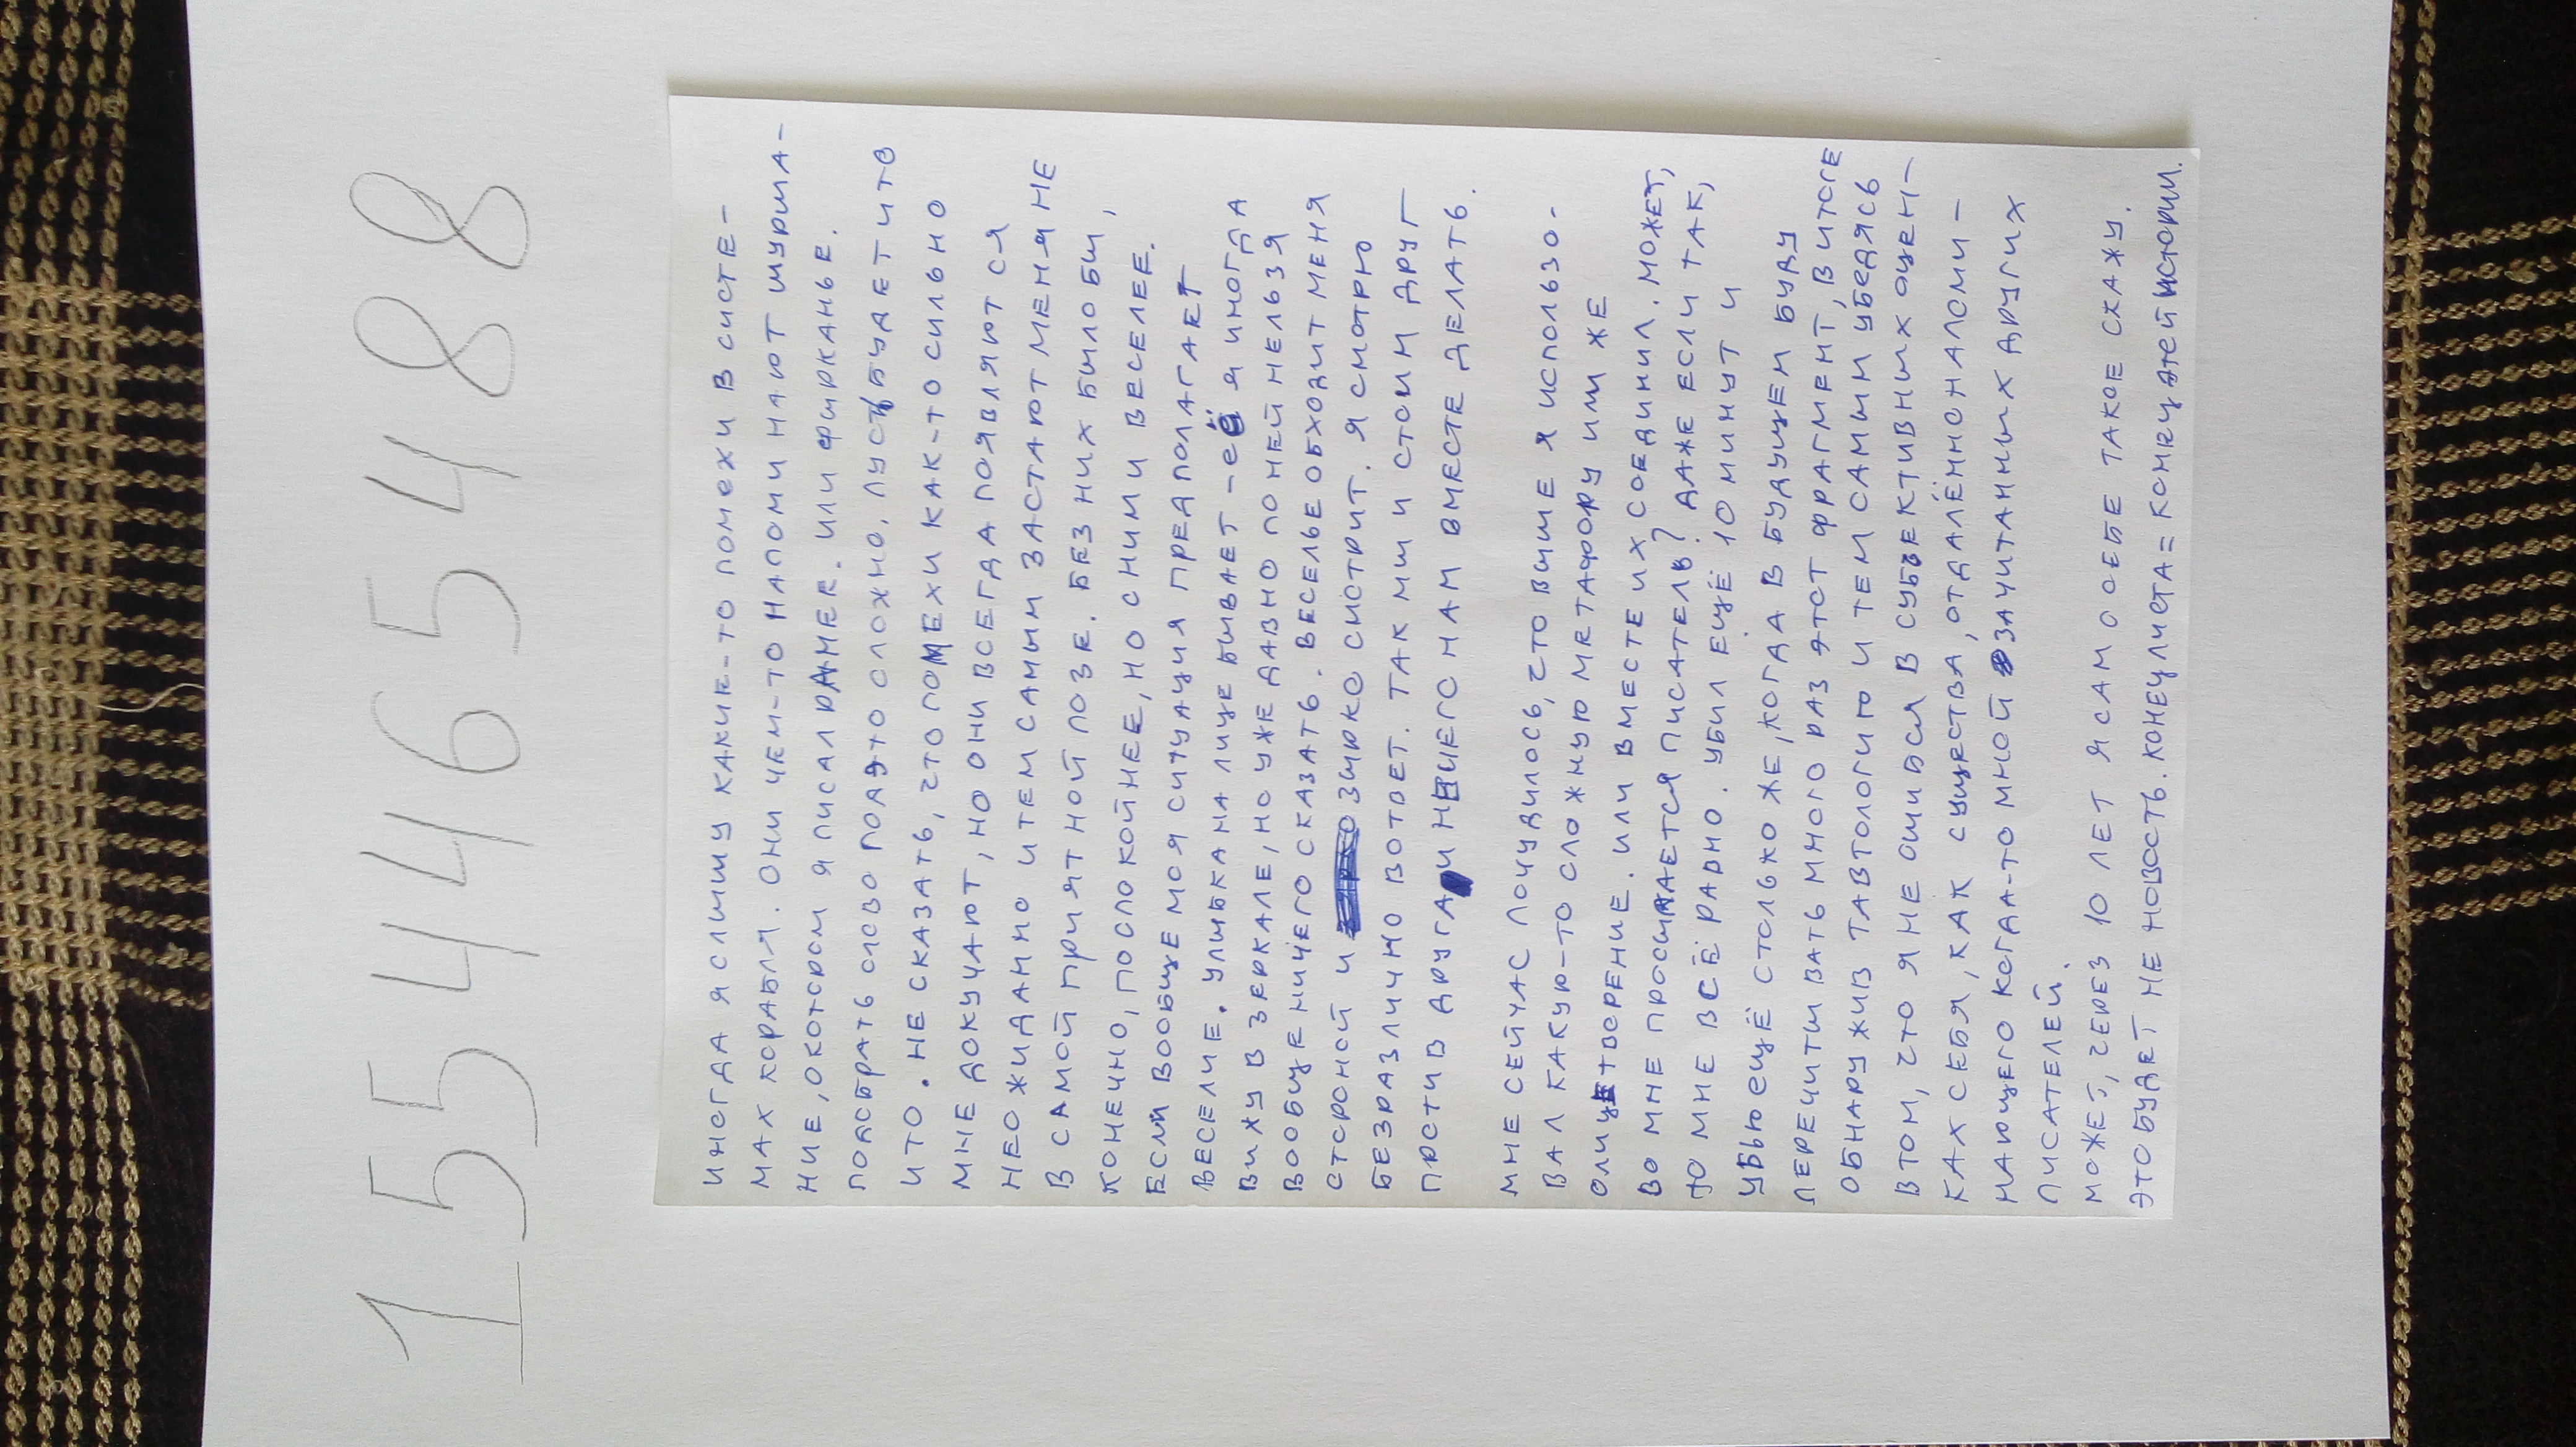 15546548​8
ИНОГДА Я СЛЫШУ КАКИЕ-ТО ПОМЕХИ В СИСТЕ-
МАХ КОРАБЛЯ. ОНИ ЧЕМ-ТО НАПОМИНАЮТ ШУРША-
НИЕ, О КОТОРОМ Я ПИСАЛ РАНЕЕ. ИЛИ ФЫРКАНЬЕ.
ПОДОБРАТЬ СЛОВО ПОД ЭТО СЛОЖНО, ПУСТЬ БУДЕТ И ТО
И ТО. НЕ СКАЗАТЬ, ЧТО ПОМЕХИ КАК-ТО СИЛЬНО
МНЕ ДОКУЧАЮТ, НО ОНИ ВСЕГДА ПОЯВЛЯЮТСЯ
НЕОЖИДАННО И ТЕМ САМЫМ ЗАСТАЮТ МЕНЯ НЕ
В САМОЙ ПРИЯТНОЙ ПОЗЕ. БЕЗ НИХ БЫЛО БЫ,
КОНЕЧНО, ПОСПОКОЙНЕЕ, НО С НИМИ ВЕСЕЛЕЕ.
ЕСЛИ ВООБЩЕ МОЯ СИТУАЦИЯ ПРЕДПОЛАГАЕТ
ВЕСЕЛИЕ. УЛЫБКА НА ЛИЦЕ БЫВАЕТ - ЕЁ Я ИНОГДА
ВИЖУ В ЗЕРКАЛЕ, НО УЖЕ ДАВНО ПО НЕЙ НЕЛЬЗЯ
ВООБЩЕ НИЧЕГО СКАЗАТЬ. ВЕСЕЛЬЕ ОБХОДИТ МЕНЯ
СТОРОНОЙ И ЗЫРКО СМОТРИТ. Я СМОТРЮ
БЕЗРАЗЛИЧНО В ОТВЕТ. ТАК МЫ И СТОИМ ДРУГ
ПРОТИВ ДРУГА И НЕЧЕГО НАМ ВМЕСТЕ ДЕЛАТЬ.
МНЕ СЕЙЧАС ПОЧУДИЛОСЬ, ЧТО ВЫШЕ Я ИСПОЛЬЗО-
ВАЛ КАКУЮ-ТО СЛОЖНУЮ МЕТАФОРУ ИЛИ ЖЕ
ОЛИЦЕТВОРЕНИЕ. ИЛИ ВМЕСТЕ ИХ СОЕДИНИЛ. МОЖЕТ,
ВО МНЕ ПРОСЫПАЕТСЯ ПИСАТЕЛЬ? ДАЖЕ ЕСЛИ ТАК,
ТО МНЕ ВСЁ РАВНО. УБИЛ ЕЩЁ 10 МИНУТ И
УБЬЮ ЕЩЁ СТОЛЬКО ЖЕ, КОГДА В БУДУЩЕМ БУДУ
ПЕРЕЧИТЫВАТЬ МНОГО РАЗ ЭТОТ ФРАГМЕНТ, В ИТОГЕ
ОБНАРУЖИВ ТАВТОЛОГИЮ И ТЕМ САМЫМ УБЕДЯСЬ
В ТОМ, ЧТО Я НЕ ОШИБСЯ В СУБЪЕКТИВНЫХ ОЦЕН-
КАХ СЕБЯ, КАК СУЩЕСТВА, ОТДАЛЁННО НАПОМИ-
НАЮЩЕГО КОГДА-ТО МНОЙ ЗАЧИТАННЫХ ДРУГИХ
ПИСАТЕЛЕЙ.
МОЖЕТ, ЧЕРЕЗ 10 ЛЕТ Я САМ О СЕБЕ ТАКОЕ СКАЖУ.
ЭТО БУДЕТ НЕ НОВОСТЬ. КОНЕЦ ЛИСТА = КОНЕЦ ЭТОЙ ИСТОРИИ.